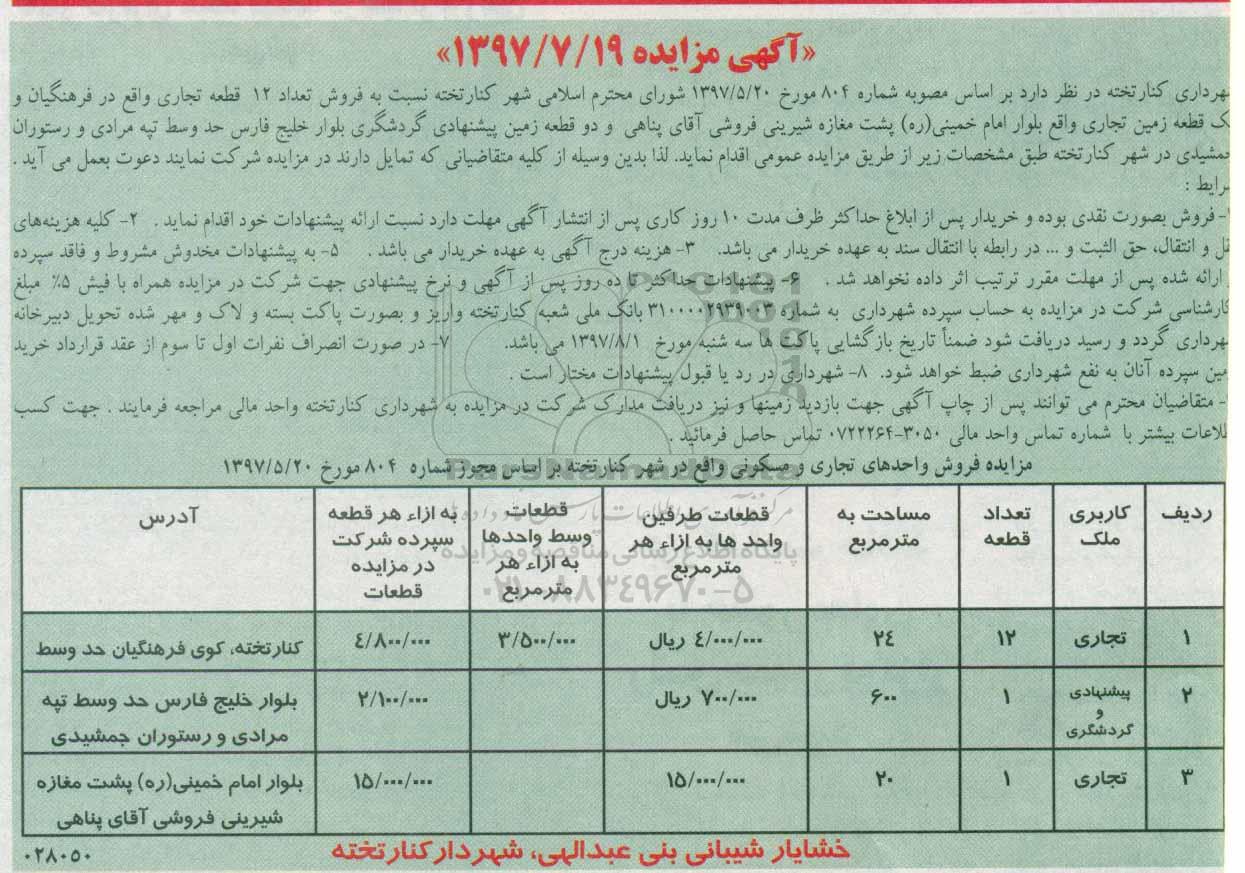 «آگهی مزایده ۱۳۹۷/۷/۱۹»
شهرداری کنارتخته در نظر دارد بر اساس مصوبه شماره ۸۰۴ مورخ ۱۳۹۷/۵/۲۰ شورای محترم اسلامی شهر کنارتخته نسبت به فروش تعداد ۱۲ قطعه تجاری واقع در فرهنگیان و
یک قطعه زمین تجاری واقع بلوار امام خمینی(ره) پشت مغازه شیرینی فروشی آقای پناهی و دو قطعه زمین پیشنهادی گردشگری بلوار خلیج فارس حد وسط تپه مرادی و رستوران
جمشیدی در شهر کنارتخته طبق مشخصات زیر از طریق مزایده عمومی اقدام نماید. لذا بدین وسیله از کلیه متقاضیانی که تمایل دارند در مزایده شرکت نمایند دعوت بعمل می آید .
شرایط :
۱- فروش بصورت نقدی بوده و خریدار پس از ابلاغ حداکثر ظرف مدت ۱۰ روز کاری پس از انتشار آگهی مهلت دارد نسبت ارائه پیشنهادات خود اقدام نماید . ۲- کلیه هزینه‌های
نقل و انتقال، حق الثبت و ... در رابطه با انتقال سند به عهده خریدار می باشد. ۳- هزینه درج آگهی به عهده خریدار می باشد . ۵- به پیشنهادات مخدوش مشروط و فاقد سپرده
و ارائه شده پس از مهلت مقرر ترتیب اثر داده نخواهد شد . ۶- پیشنهادات حداکثر تا ده روز پس از آگهی و نرخ پیشنهادی جهت شرکت در مزایده همراه با فیش ۵٪ مبلغ
کارشناسی شرکت در مزایده به حساب سپرده شهرداری به شماره ۳۱۰۰۰۰۲۹۳۹۰۰۳ بانک ملی شعبه کنارتخته واریز و بصورت پاکت بسته و لاک و مهر شده تحویل دبیرخانه
شهرداری گردد و رسید دریافت شود ضمناً تاریخ بازگشایی پاکت ها سه شنبه مورخ ۱۳۹۷/۸/۱ می باشد. ۷- در صورت انصراف نفرات اول تا سوم از عقد قرارداد خرید
زمین سپرده آنان به نفع شهرداری ضبط خواهد شود. ۸- شهرداری در رد یا قبول پیشنهادات مختار است .
- متقاضیان محترم می توانند پس از چاپ آگهی جهت بازدید زمینها و نیز دریافت مدارک شرکت در مزایده به شهرداری کنارتخته واحد مالی مراجعه فرمایند . جهت کسب
اطلاعات بیشتر با شماره تماس واحد مالی ۳۰۵۰-۰۷۲۲۲۶۴ تماس حاصل فرمائید .
مزایده فروش واحدهای تجاری و مسکونی واقع در شهر کنارتخته بر اساس مجوز شماره ۸۰۴ مورخ ۱۳۹۷/۵/۲۰
ParsNamadData
ردیف | کاربری ملک | تعداد قطعه | مساحت به مترمربع | قطعات طرفین واحد ها به ازاء هر مترمربع | قطعات وسط واحدها به ازاء هر مترمربع | به ازاء هر قطعه سپرده شرکت در مزایده قطعات | آدرس
پایگاه اطلاع رسانی مناقصه و مزایده
۰۲۱-۸۸۳۴۹۶۷۰-۵
۱ | تجاری | ۱۲ | ۲۴ | ۴/۰۰۰/۰۰۰ ریال | ۳/۵۰۰/۰۰۰ | ۴/۸۰۰/۰۰۰ | کنارتخته، کوی فرهنگیان حد وسط
۲ | پیشنهادی و گردشگری | ۱ | ۶۰۰ | ۷۰۰/۰۰۰ ریال | | ۲/۱۰۰/۰۰۰ | بلوار خلیج فارس حد وسط تپه مرادی و رستوران جمشیدی
۳ | تجاری | ۱ | ۲۰ | ۱۵/۰۰۰/۰۰۰ | | ۱۵/۰۰۰/۰۰۰ | بلوار امام خمینی(ره) پشت مغازه شیرینی فروشی آقای پناهی
خشایار شیبانی بنی عبدالهی، شهردار کنارتخته
۰۲۸۰۵۰